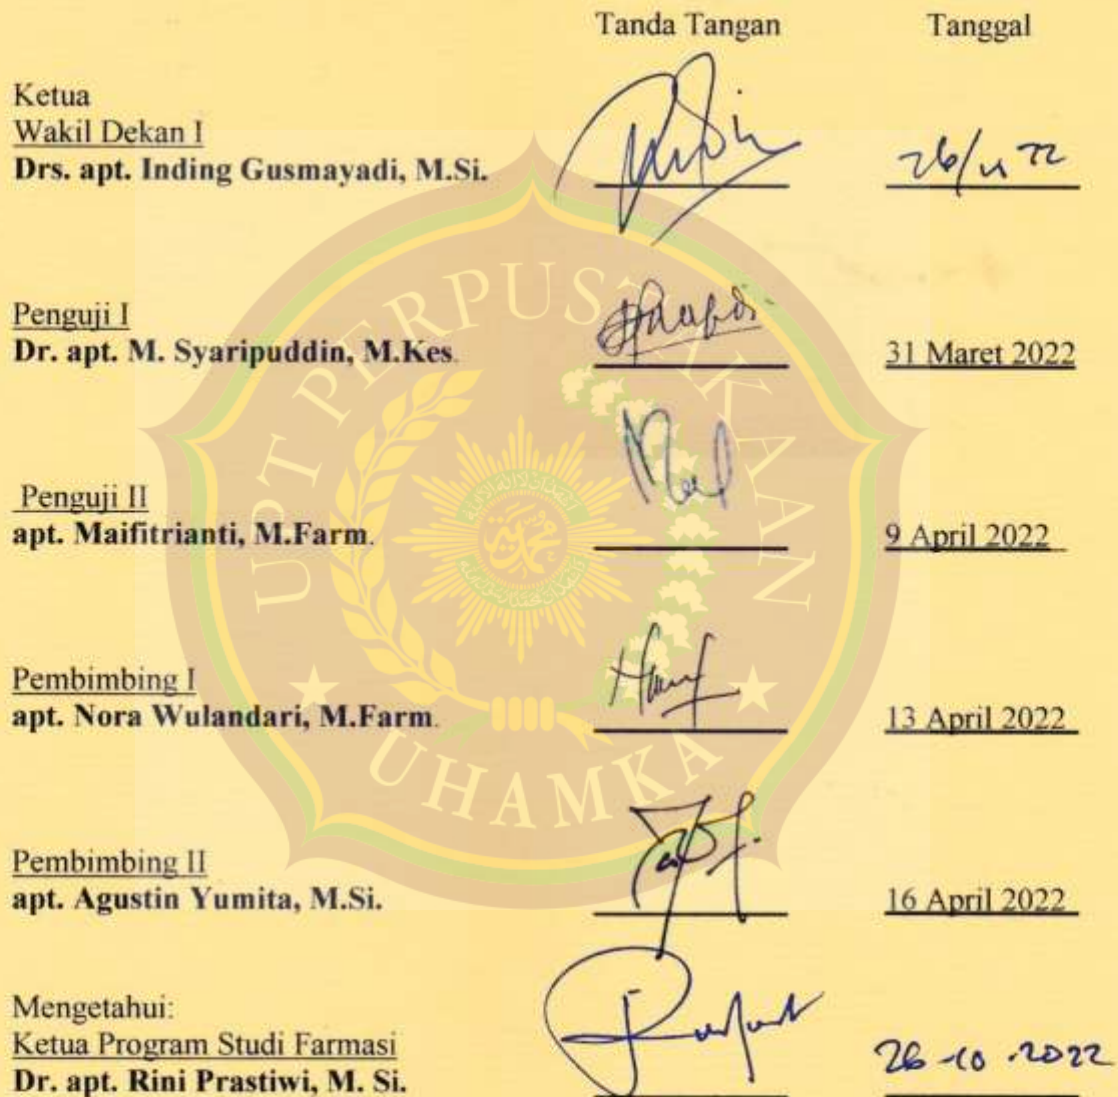 Tanda Tangan Tanggal
Ketua
Wakil Dekan I
Drs. apt. Inding Gusmayadi, M.Si.
Penguji I
Dr. apt. M. Syaripuddin, M.Kes. 31 Maret 2022
Penguji II
apt. Maifitrianti, M.Farm. 9 April 2022
Pembimbing I
apt. Nora Wulandari, M.Farm. 13 April 2022
Pembimbing II
apt. Agustin Yumita, M.Si. 16 April 2022
Mengetahui:
Ketua Program Studi Farmasi
Dr. apt. Rini Prastiwi, M. Si. 26-10-2022
UPT PERPUSTAKAAN
UHAMKA